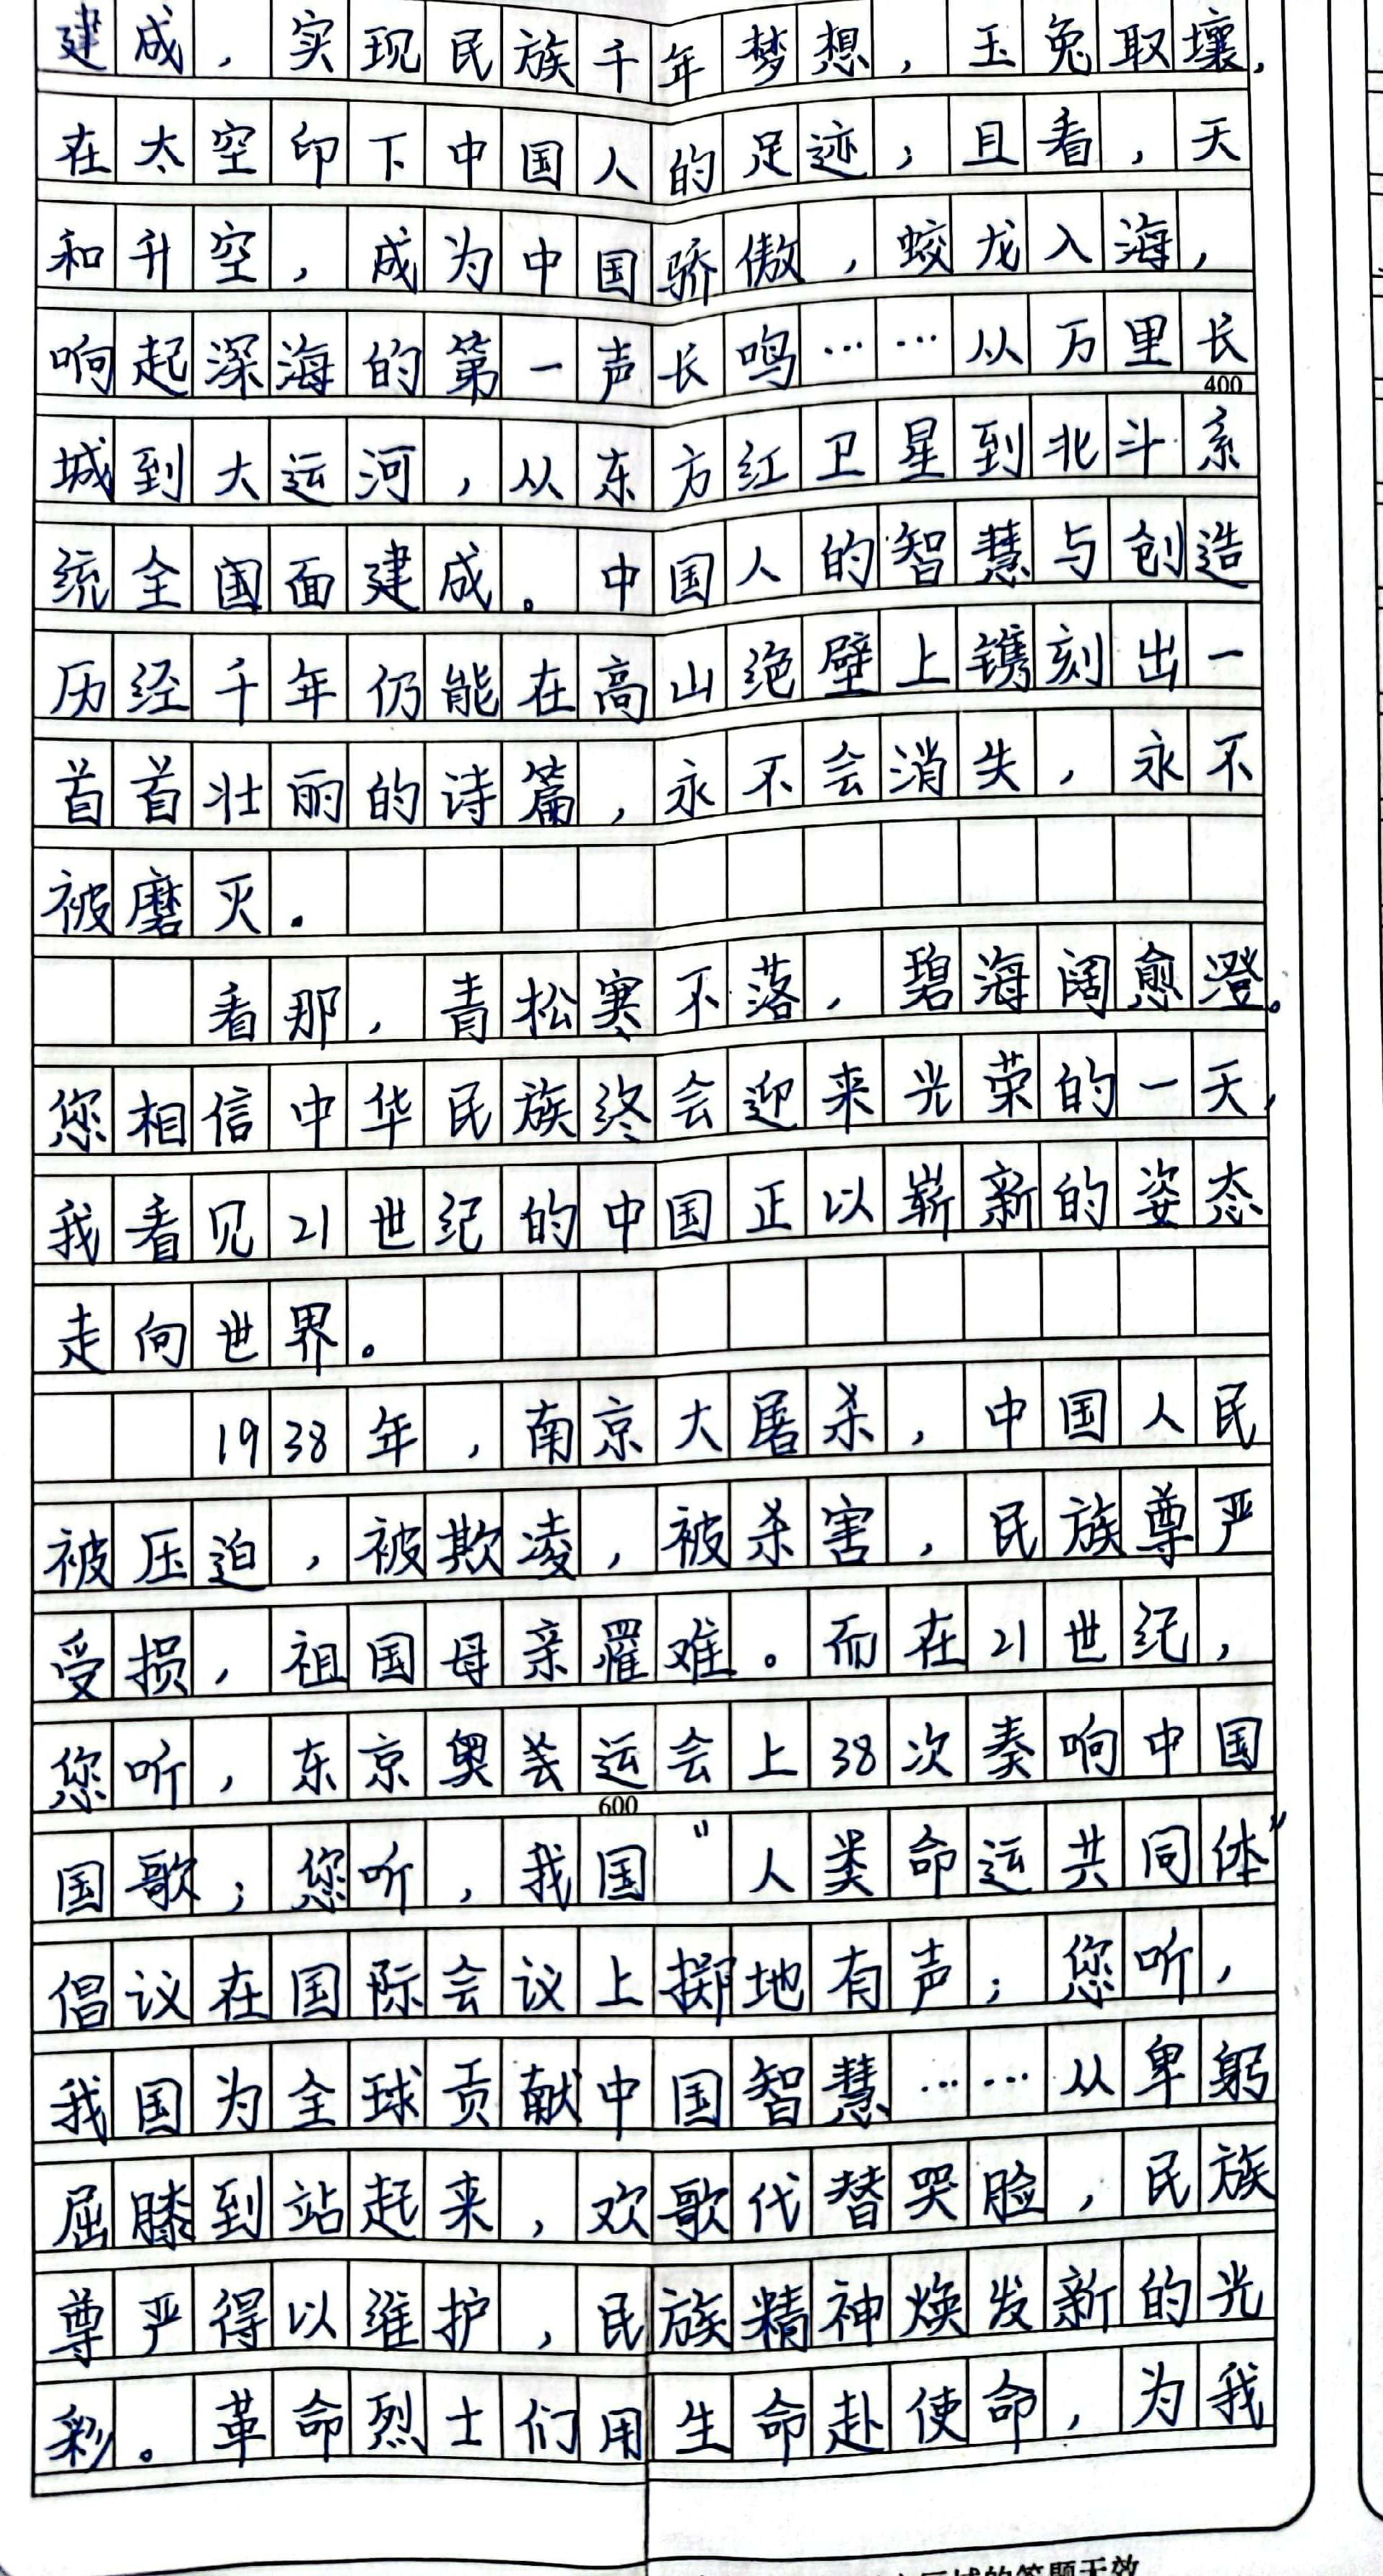 建成，实现民族千年梦想，玉兔取壤，
在太空印下中国人的足迹；且看，天
和升空，成为中国骄傲，蛟龙入海，
响起深海的第一声长鸣……从万里长
400
城到大运河，从东方红卫星到北斗系
统全国面建成。中国人的智慧与创造
历经千年仍能在高山绝壁上镌刻出一
首首壮丽的诗篇，永不会消失，永不
被磨灭。
看那，青松寒不落，碧海阔愈澄。
您相信中华民族终会迎来光荣的一天，
我看见21世纪的中国正以崭新的姿态
走向世界。
1938年，南京大屠杀，中国人民
被压迫，被欺凌，被杀害，民族尊严
受损，祖国母亲罹难。而在21世纪，
您听，东京奥运会上38次奏响中国
600
国歌；您听，我国“人类命运共同体”
倡议在国际会议上掷地有声；您听，
我国为全球贡献中国智慧……从卑躬
屈膝到站起来，欢歌代替哭脸，民族
尊严得以维护，民族精神焕发新的光
彩。革命烈士们用生命赴使命，为我
区域的答题无效